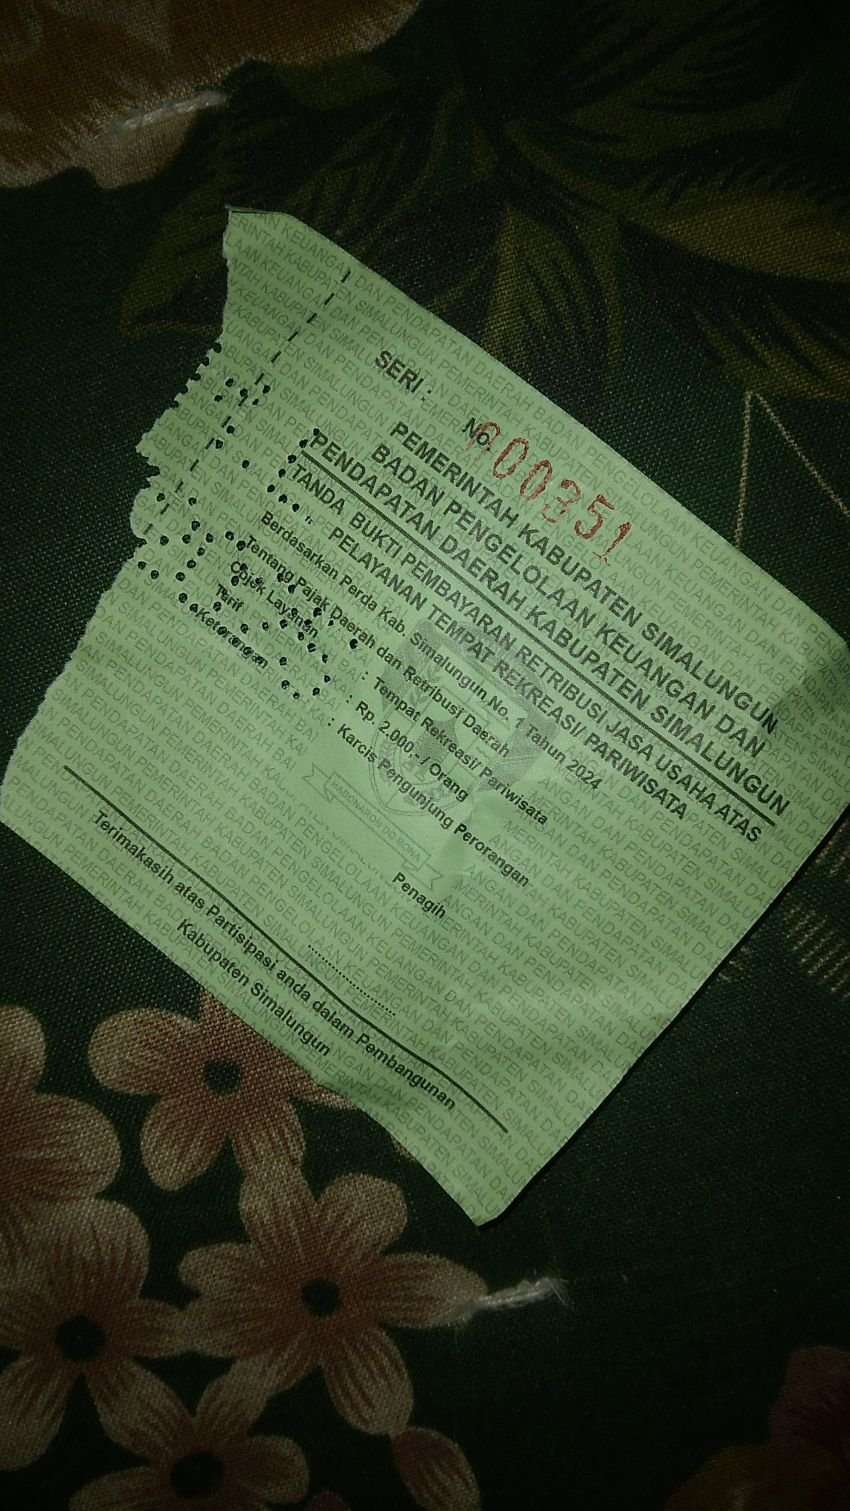 SERI :
No. 000351
PEMERINTAH KABUPATEN SIMALUNGUN
BADAN PENGELOLAAN KEUANGAN DAN
PENDAPATAN DAERAH KABUPATEN SIMALUNGUN
TANDA BUKTI PEMBAYARAN RETRIBUSI JASA USAHA ATAS
PELAYANAN TEMPAT REKREASI/ PARIWISATA
Berdasarkan Perda Kab. Simalungun No. 1 Tahun 2024
Tentang Pajak Daerah dan Retribusi Daerah
Objek Layanan : Tempat Rekreasi/ Pariwisata
Tarif : Rp. 2.000,- / Orang
Keterangan : Karcis Pengunjung Perorangan
HABONARON DO BONA
Penagih
Terimakasih atas Partisipasi anda dalam Pembangunan
Kabupaten Simalungun